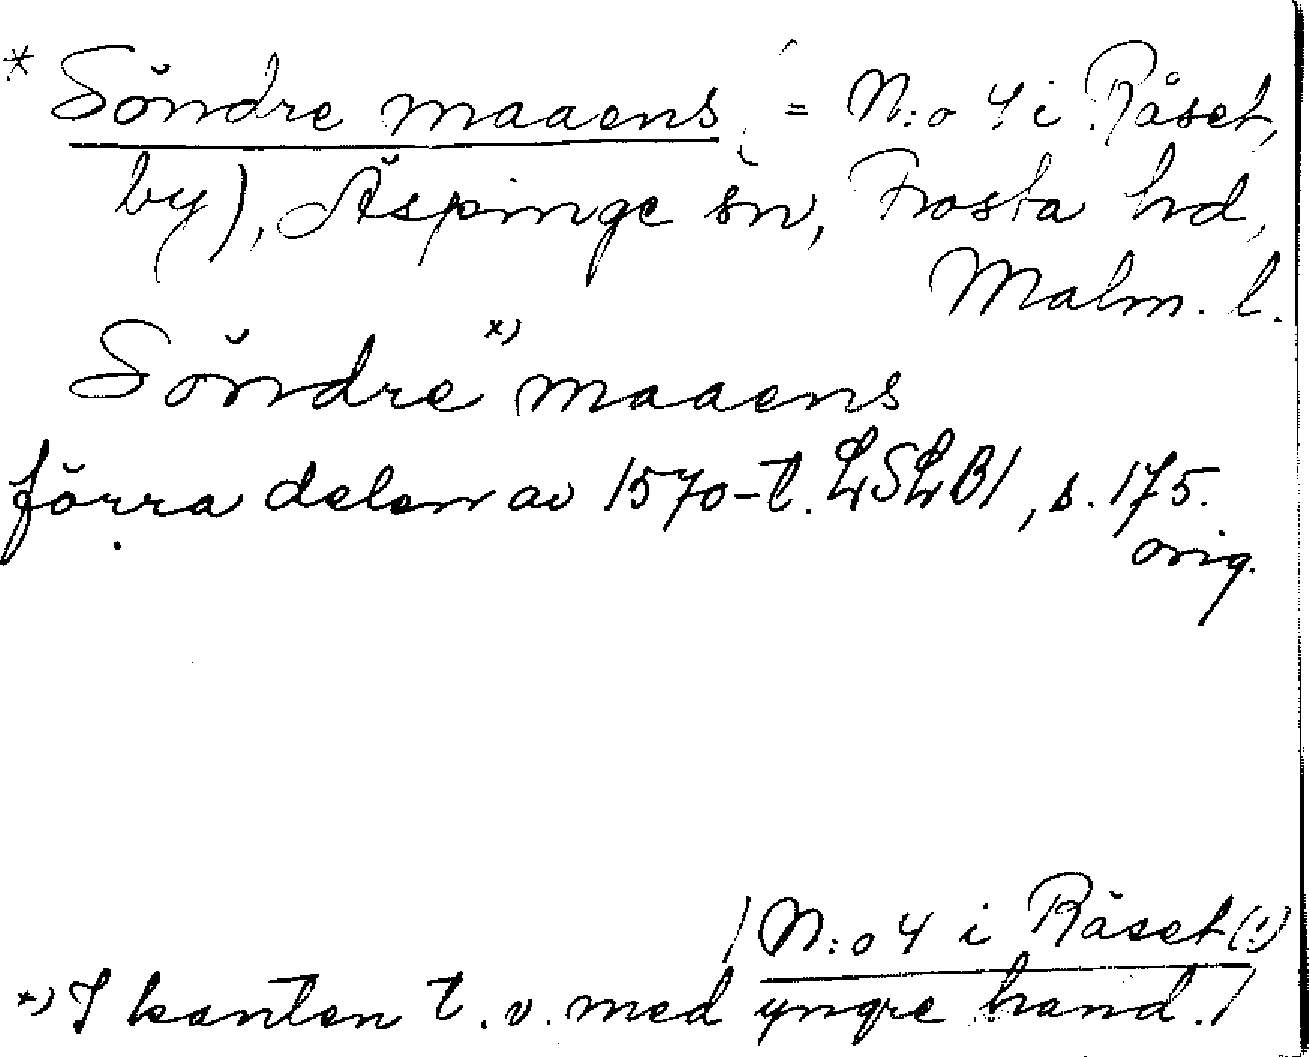 * Söndre maaens (= N:o 4 i Råset,
by), Äspinge sn, Frosta hd,
Malm. l.
Söndre x) maaens
förra delen av 1570-t. LSLB1, s. 175.
orig.
/N:o 4 i Råset (!)
x) I kanten t. v. med yngre hand./